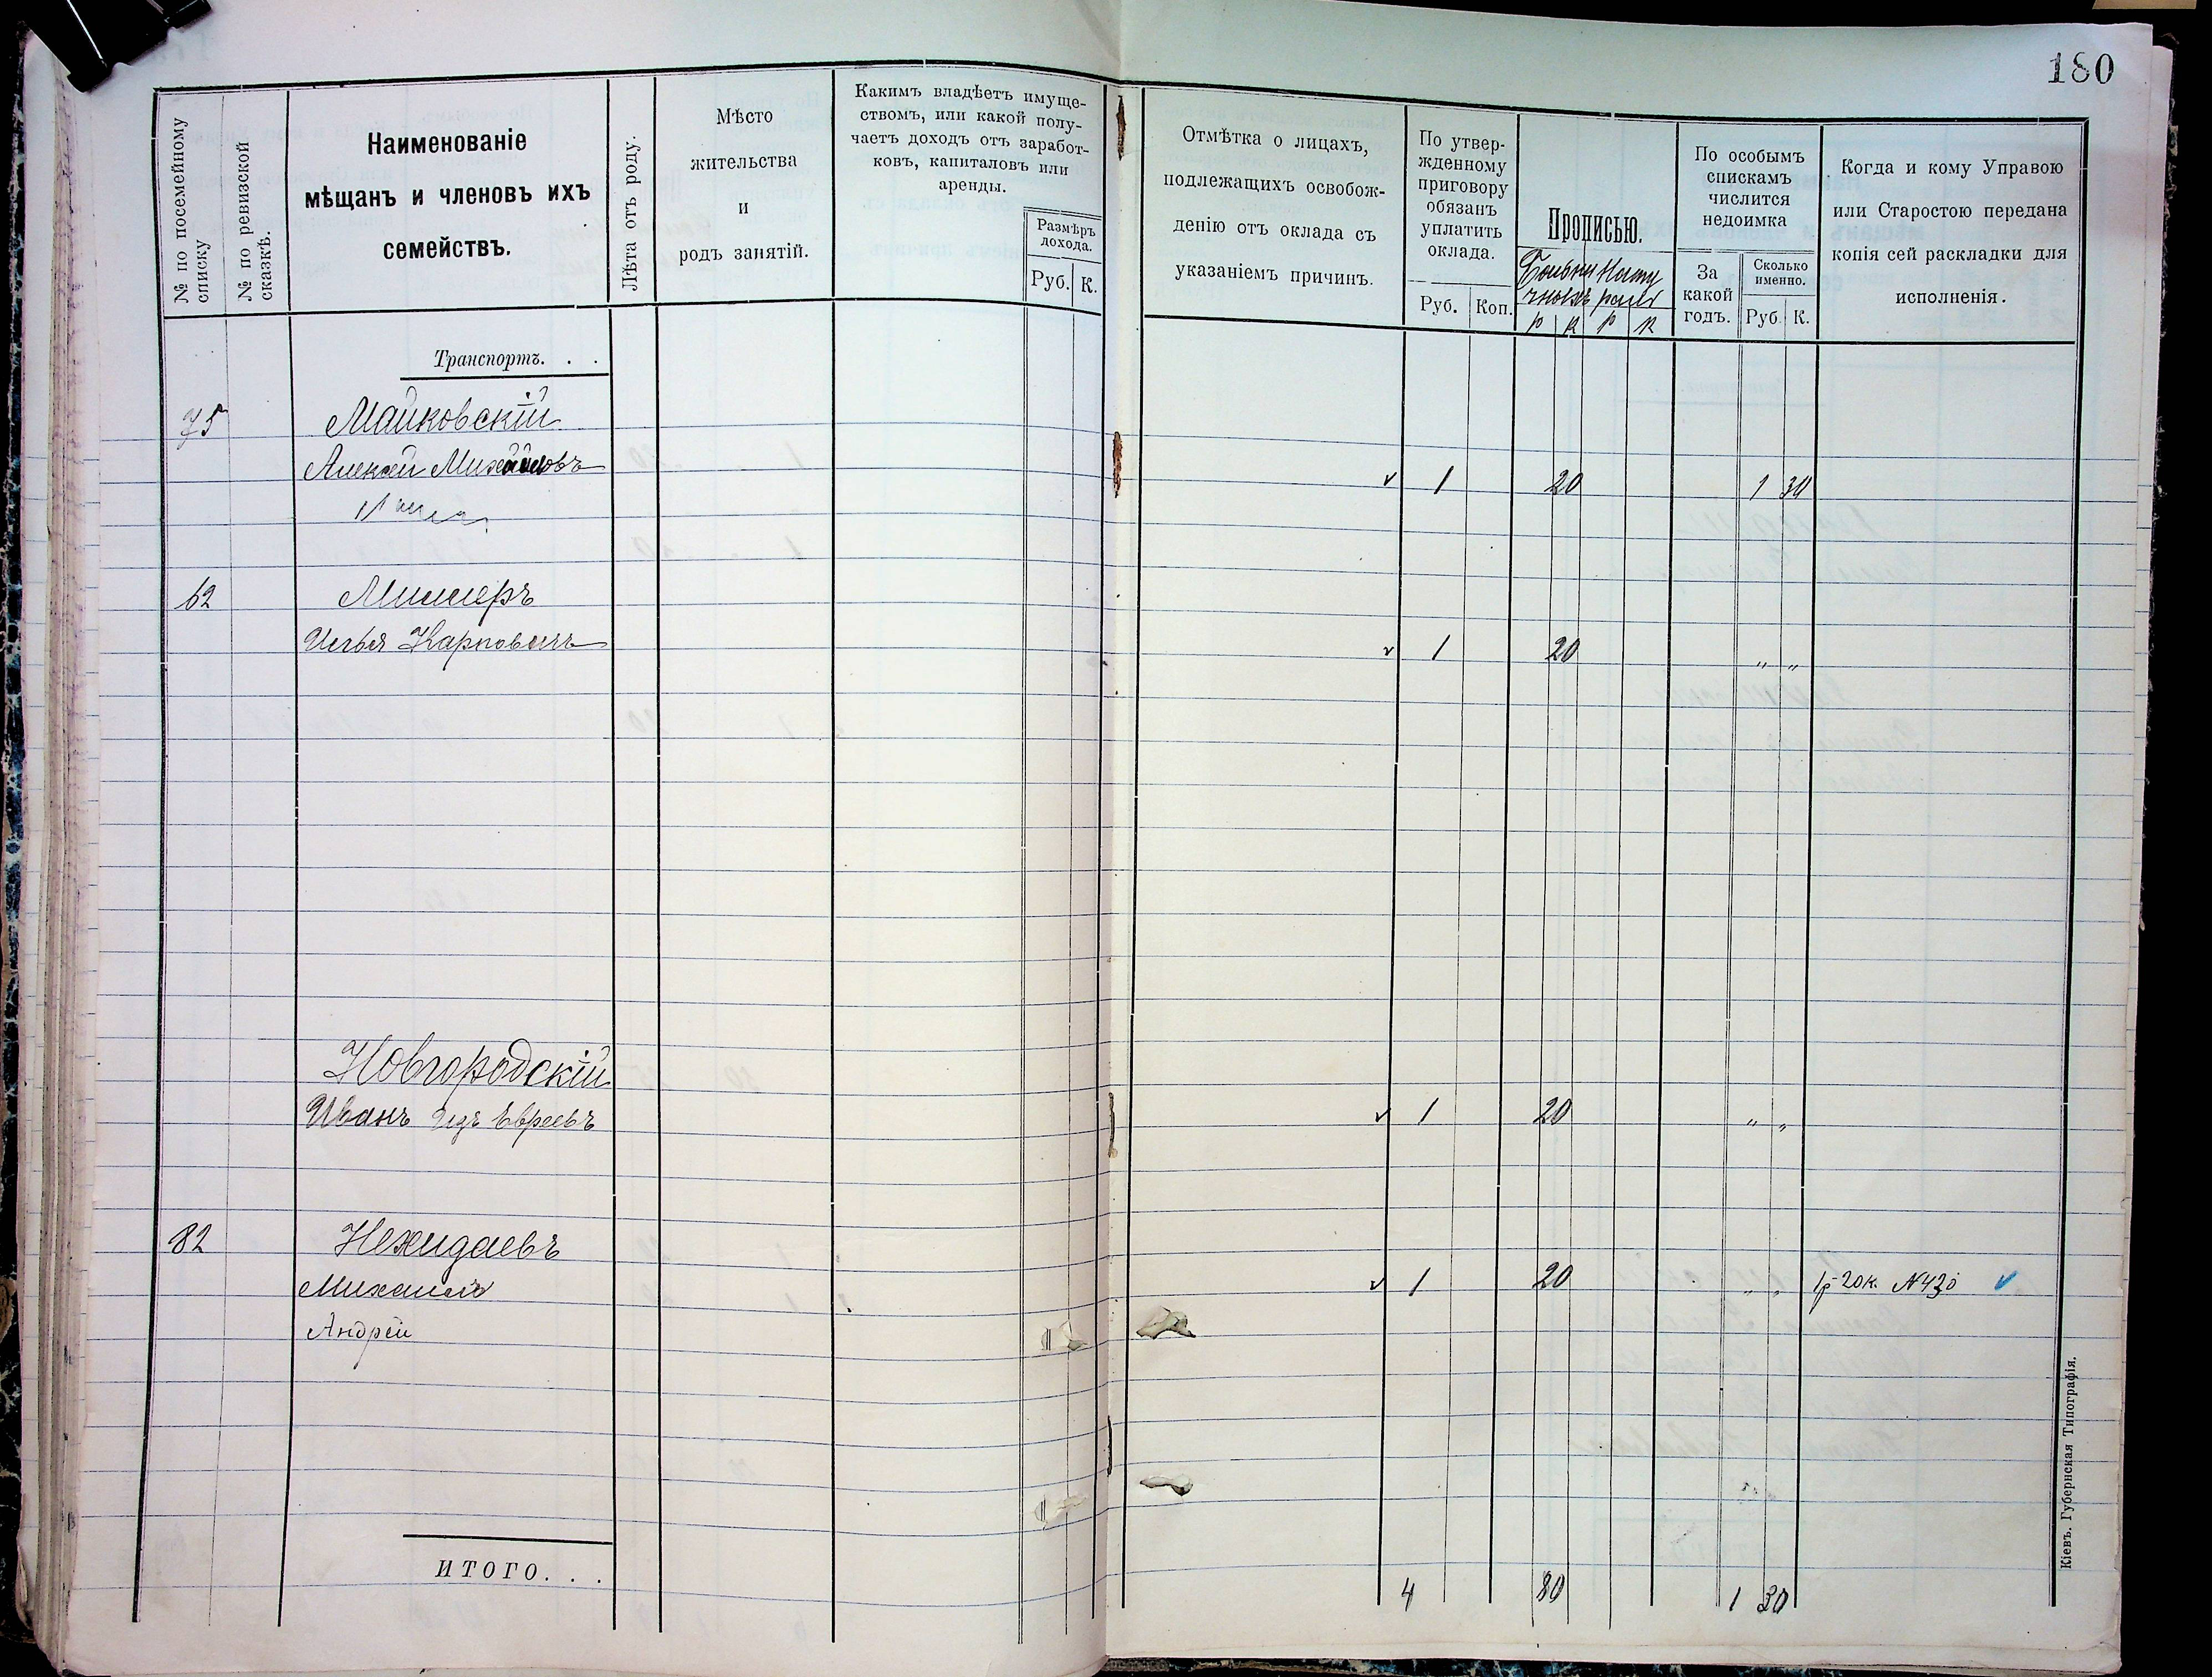 180
№ по посемейному списку
№ по ревизской сказкѣ.
Наименованіе
мѣщанъ и членовъ ихъ
семействъ.
Лѣта отъ роду.
Мѣсто
жительства
и
родъ занятій.
Какимъ владѣетъ имуще-
ствомъ, или какой полу-
чаетъ доходъ отъ заработ-
ковъ, капиталовъ или
аренды.
Размѣръ
дохода.
Руб. К.
Отмѣтка о лицахъ,
подлежащихъ освобож-
денію отъ оклада съ
указаніемъ причинъ.
По утвер-
жденному
приговору
обязанъ
уплатить
оклада.
Руб. Коп.
Прописью.
р к р к
По особымъ
спискамъ
числится
недоимка
За
какой
годъ.
Сколько
именно.
Руб. К.
Когда и кому Управою
или Старостою передана
копія сей раскладки для
исполненія.
Транспортъ. . .
75 Майковскій
Алексѣй Михайловъ 1 20 1 30
62 Миллеръ
Илья Карповичъ 1 20 " "
Новгородскій
Иванъ Изъ Евреевъ 1 20 " "
82 Нехидаевъ
Михаилъ 1 20 " " 1р 20к. N430
Андрей
ИТОГО. . . 4 80 1 30
Кіевъ. Губернская Типографія.